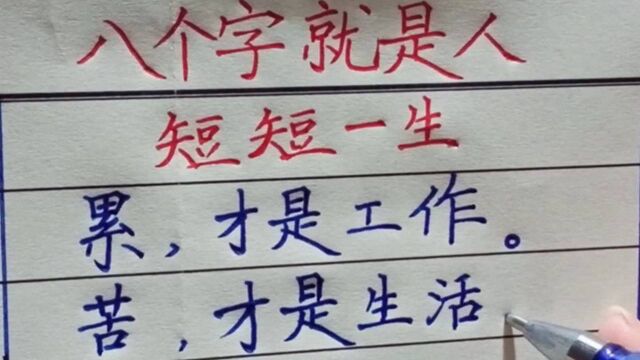 八个字就是人
短短一生
累，才是工作。
苦，才是生活